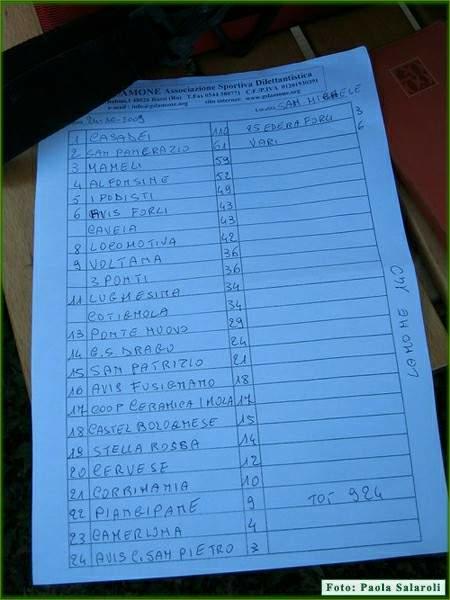 LAMONE Associazione Sportiva Dilettantistica
48026 Russi (Ra) T.Fax 0544 580771 C.F./P.IVA 01201930391
e.mail: info@gslamone.org sito internet: www.gslamone.org
SAN MICHELE
1 CASADEI 110 25 EDERA FORLI 3
2 SAN PANCRAZIO 61 VARI 6
3 MAMELI 59
4 ALFONSINE 52
5 I PODISTI 49
6 AVIS FORLI 43
CAVEIA 43
8 LOCOMOTIVA 42
9 VOLTANA 36
3 PONTI 36
11 LUGHESINA 34
COTIGNOLA 34
13 PONTE NUOVO 29
14 G.S. DRAGO 24
15 SAN PATRIZIO 21
16 AVIS FUSIGNANO 18
17 COOP CERAMICA IMOLA 17
18 CASTEL BOLOGNESE 15
19 STELLA ROSSA 14
20 CERVESE 12
21 CORRIMANIA 10
22 PIANGIPANE 9 TOT 924
23 CAMERLONA 4
24 AVIS C. SAN PIETRO 3
Foto: Paola Salaroli